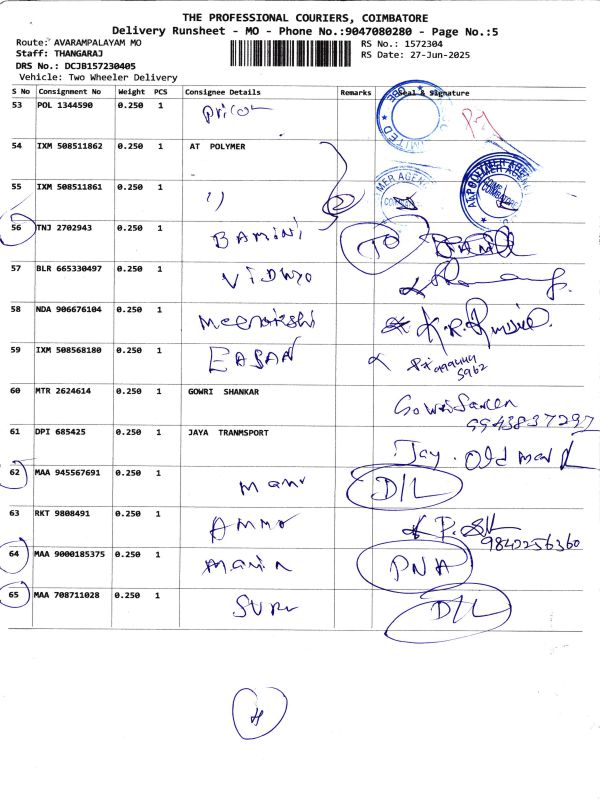 THE PROFESSIONAL COURIERS, COIMBATORE
Delivery Runsheet - MO - Phone No.:9047080280 - Page No.:5
Route: AVARAMPALAYAM MO RS No.: 1572304
Staff: THANGARAJ RS Date: 27-Jun-2025
DRS No.: DCJB157230405
Vehicle: Two Wheeler Delivery
S No Consignment No Weight PCS Consignee Details Remarks Seal & Signature
53 POL 1344590 0.250 1 Pricol
54 IXM 508511862 0.250 1 AT POLYMER
-
55 IXM 508511861 0.250 1 ')
56 TNJ 2702943 0.250 1 BAMINI
57 BLR 665330497 0.250 1 VIDHYO
58 NDA 906676104 0.250 1 Meenakshi
59 IXM 508568180 0.250 1 EASAN 999444
5962
60 MTR 2624614 0.250 1 GOWRI SHANKAR
9943837297
61 DPI 685425 0.250 1 JAYA TRANMSPORT Jay. Old man
62 MAA 945567691 0.250 1 Manv D/L
63 RKT 9808491 0.250 1 Ammo 9842256360
64 MAA 9000185375 0.250 1 Manin PNA
65 MAA 708711028 0.250 1 SURE D/L